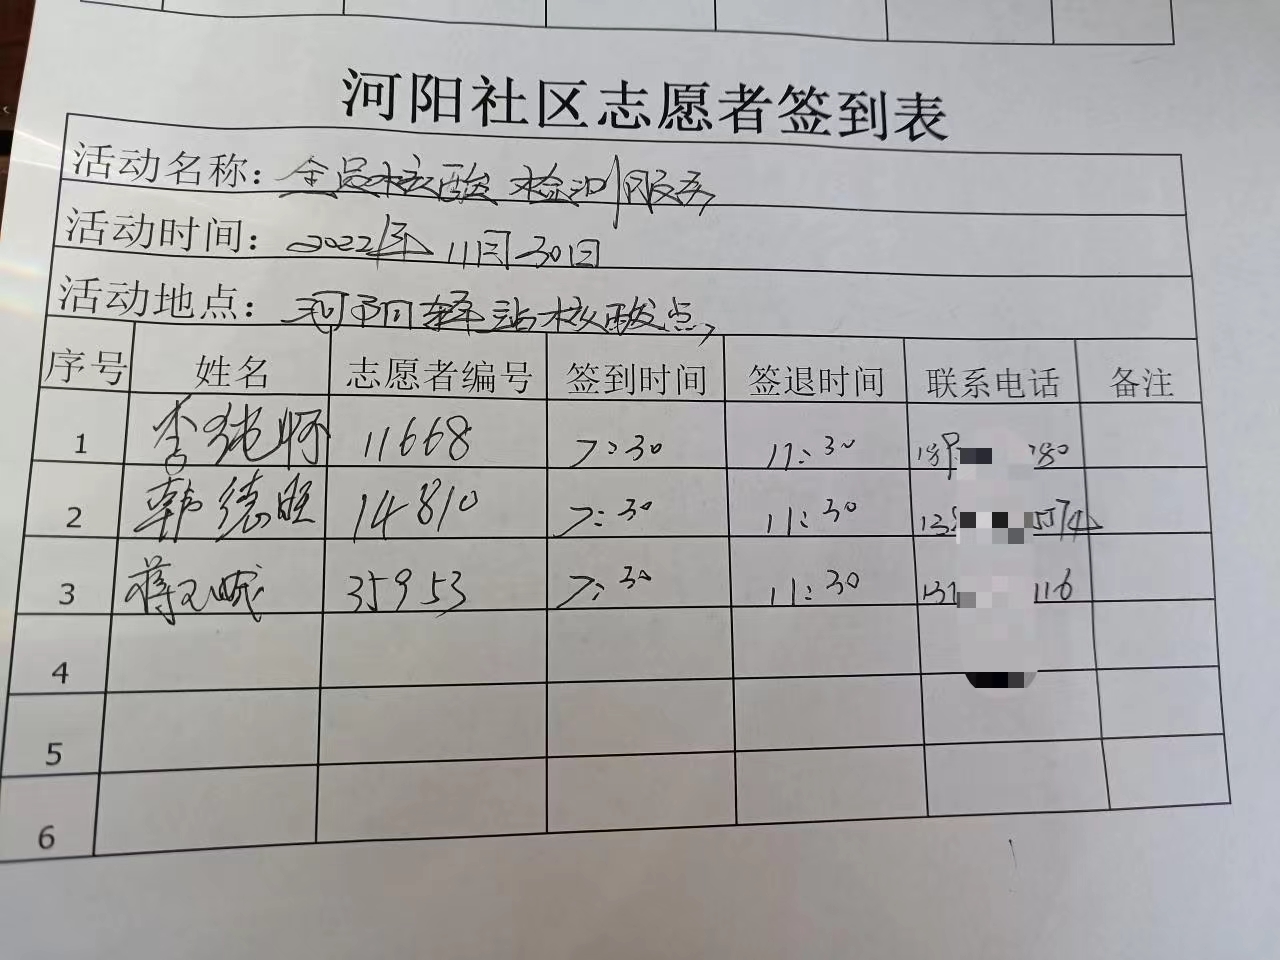 河阳社区志愿者签到表
活动名称：全员核酸检测服务
活动时间：2022年11月30日
活动地点：河阳驿站核酸点
序号 姓名 志愿者编号 签到时间 签退时间 联系电话 备注
1 李 11668 7:30 11:30 18 280
2 韩德胜 14810 7:30 11:30 138
3 蒋 35953 7:30 11:30 137 116
4
5
6